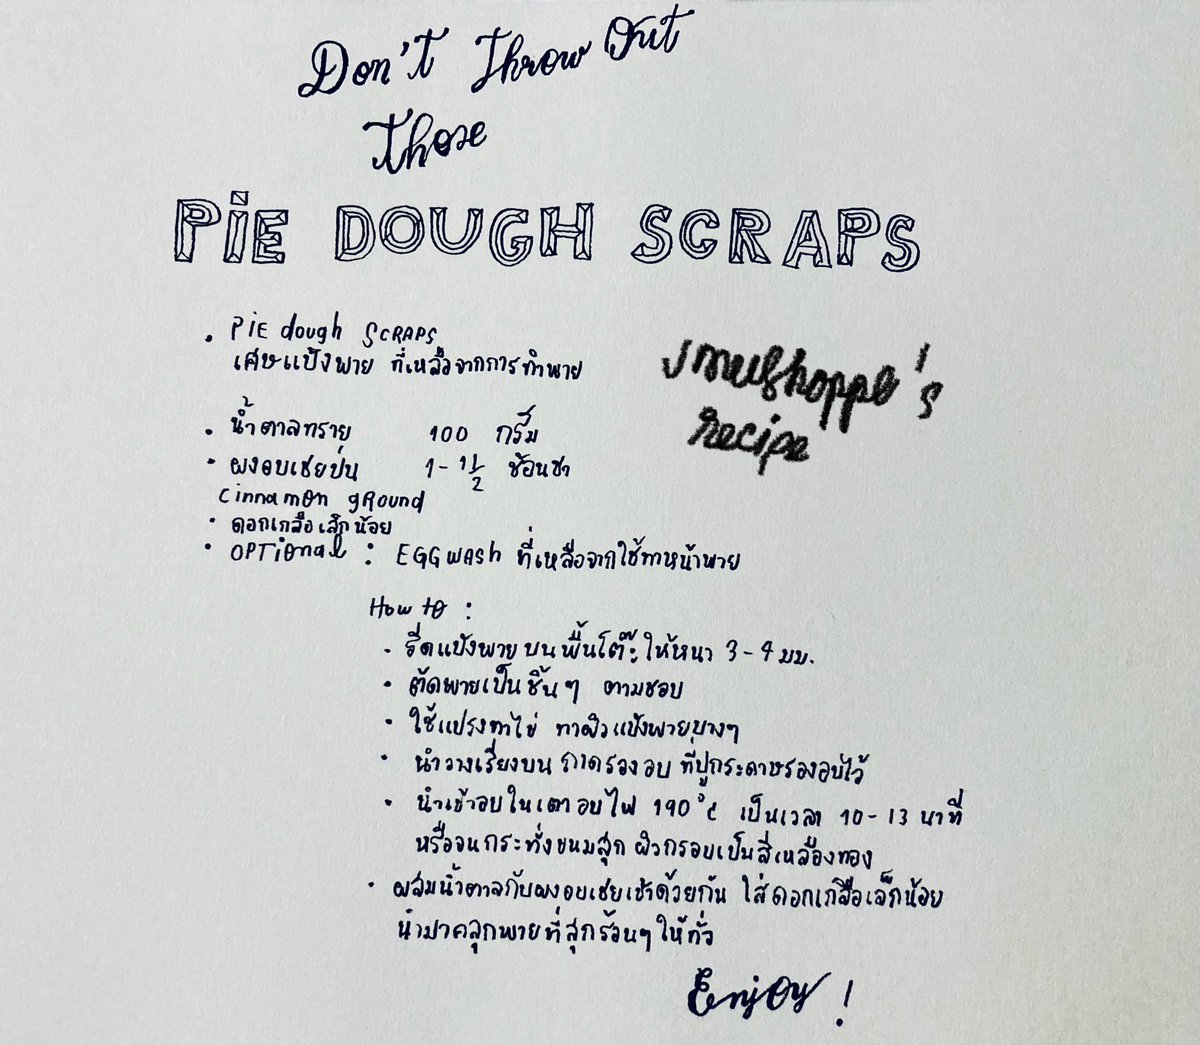 Don't Throw Out
Those
PiE DOUGH SCRAPS
• PiE dough SCRAPS
เศษแป้งพาย ที่เหลือจากการทำพาย
recipe
• น้ำตาลทราย 100 กรัม
• ผงอบเชยป่น 1-1 1/2 ช้อนชา
cinnamon gRound
• ดอกเกลือเล็กน้อย
• OPTional : EGG wash ที่เหลือจากใช้ทาหน้าพาย
How to :
• รีดแป้งพายบนพื้นโต๊ะให้หนา 3-4 มม.
• ตัดพายเป็นชิ้นๆ ตามชอบ
• ใช้แปรงทาไข่ ทาผิวแป้งพายบางๆ
• นำวางเรียงบน ถาดรองอบ ที่ปูกระดาษรองอบไว้
• นำเข้าอบในเตาอบไฟ 190°c เป็นเวลา 10-13 นาที
หรือจนกระทั่งขนมสุก ผิวกรอบเป็นสีเหลืองทอง
• ผสมน้ำตาลกับผงอบเชยเข้าด้วยกัน ใส่ดอกเกลือเล็กน้อย
นำมาคลุกพายที่สุกร้อนๆ ให้ทั่ว
Enjoy !